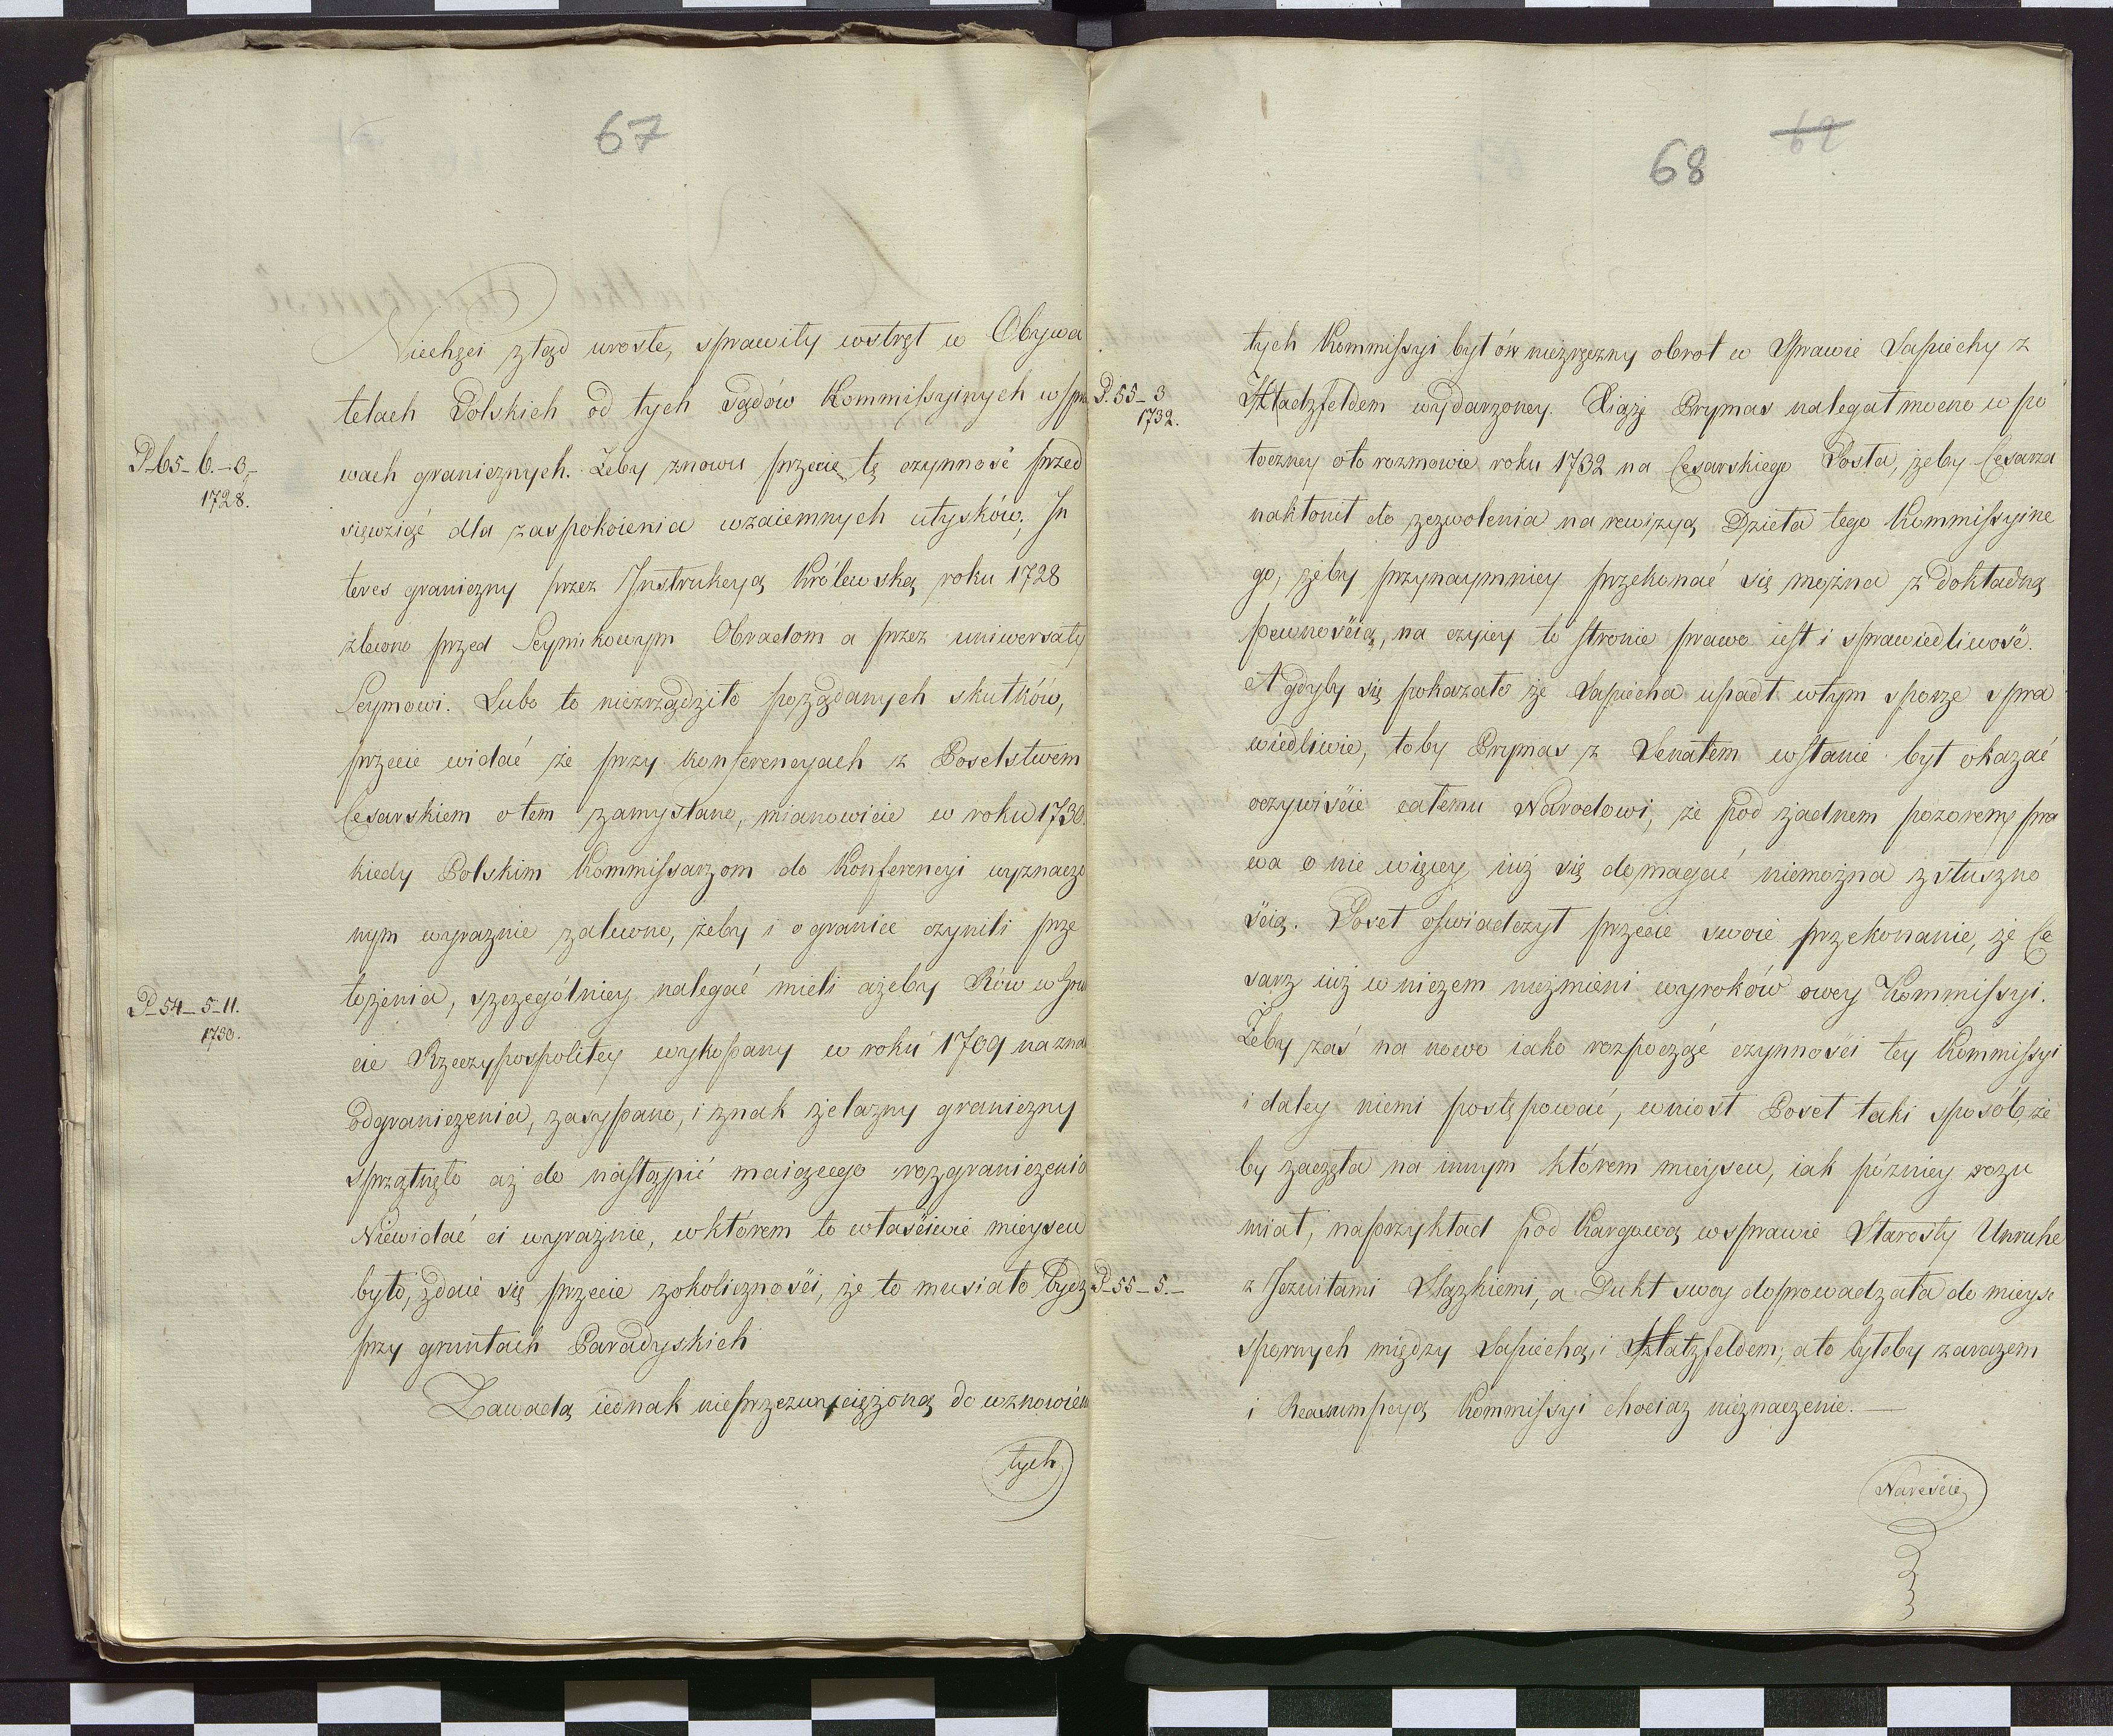 67
Niechęci ztąd urosłe, sprawiły wstręt w Obywa
telach Polskich od tych sądów Kommissyinych w spra
P. 65 – 6. – 3 –
1728.
wach granicznych. Żeby znowu przecie tę czynność przed
sięwziąć dla zaspokoienia wzaiemnych utysków, In
teres graniczny przez Instrukcyą Królewską roku 1728
zlecono przed Seymikowym Obradom a przez uniwersały
Seymowi. Lubo to niezrządziło pożądanych skutków,
przecie widać że przy konferencyach z Poselstwem
Cesarskiem o tem zamyślano, mianowicie w roku 1730.
kiedy Polskim Kommissarzom do Konferencyi wyznaczo
nym wyraznie zalecono, żeby i o granice czynili prze
łożenia, szczególniey nalegać mieli ażeby Rów w Grun
P. 54 – 5 – 11.
1730.
cie Rzeczypospolitey wykopany w roku 1709 na znak
odgraniczenia, zasypano, i znak żelazny graniczny
sprzątnęło aż do nastąpić maiącego rozgraniczenia
Niewidać ci wyraźnie, w którem to właściwie mieyscu
było, zdaie się przecie z okoliczności, że to musiało bydź
przy gruntach Paradyskich
Zawadą iednak nieprzezwyciężoną do wznowień
tych
68
62
tych Kommissyi był ów niezręczny obrot w Sprawie Sapiechy z
P. 55 – 3
1732.
Hatzfeldem wydarzoney. Xiąże Prymas nalegał mocno w po
toczney oto rozmowie roku 1732 na Cesarskiego Posła, żeby Cesarza
nakłonił do zezwolenia na rewizyą Dzieła tego Kommissyine
go, żeby przynaymniey przekonać się można z dokładną
pewnością, na czyiey to stronie prawo iest i sprawiedliwość.
A gdyby się pokazało że Sapiecha upadł w tym sporze spra
wiedliwie, toby Prymas z Senatem w stanie był okazać
oczywiście całemu Narodowi, że pod żadnem pozorem pra
wa o nie więcey iuż się domagać niemożna z słuszno
ścią. Poseł oświadczył przecie swoie przekonanie, że Ce
sarz iuż w niczem niezmieni wyroków owey Kommissyi.
Żeby zaś na nowo iako rozpocząć czynności tey Kommissyi
i daley niemi postępować, wniosł Poseł taki sposób, że
by zaczęła na innym którem mieyscu, iak pózniey rozu
miał, naprzykład pod Kargową w sprawie Starosty Unruhe
P. 55 – 5. –
z Jezuitami Sląskiemi, a Dukt swoy doprowadzała do mieysc
spornych między Sapiechą i Hatzfeldem; a to byłoby zarazem
i Reassumpcyą Kommissyi chociaz nieznacznie. —
Nareście